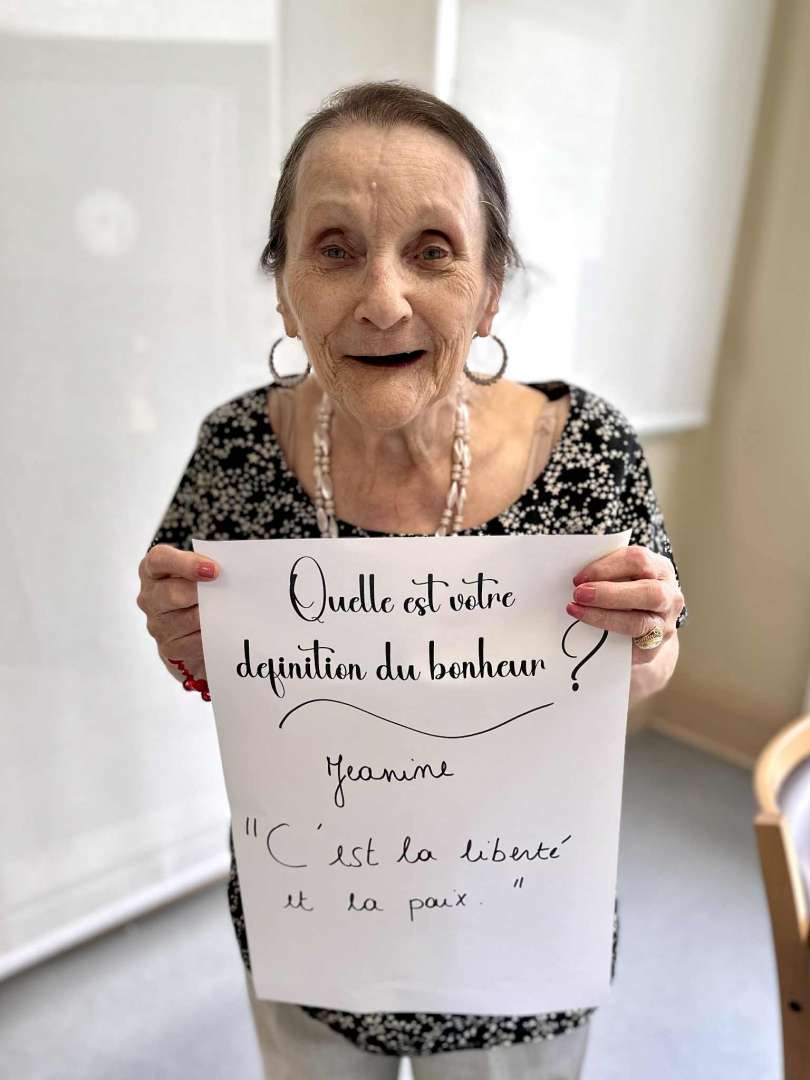 Quelle est votre
definition du bonheur ?
Jeanine
"C'est la liberté
et la paix. "